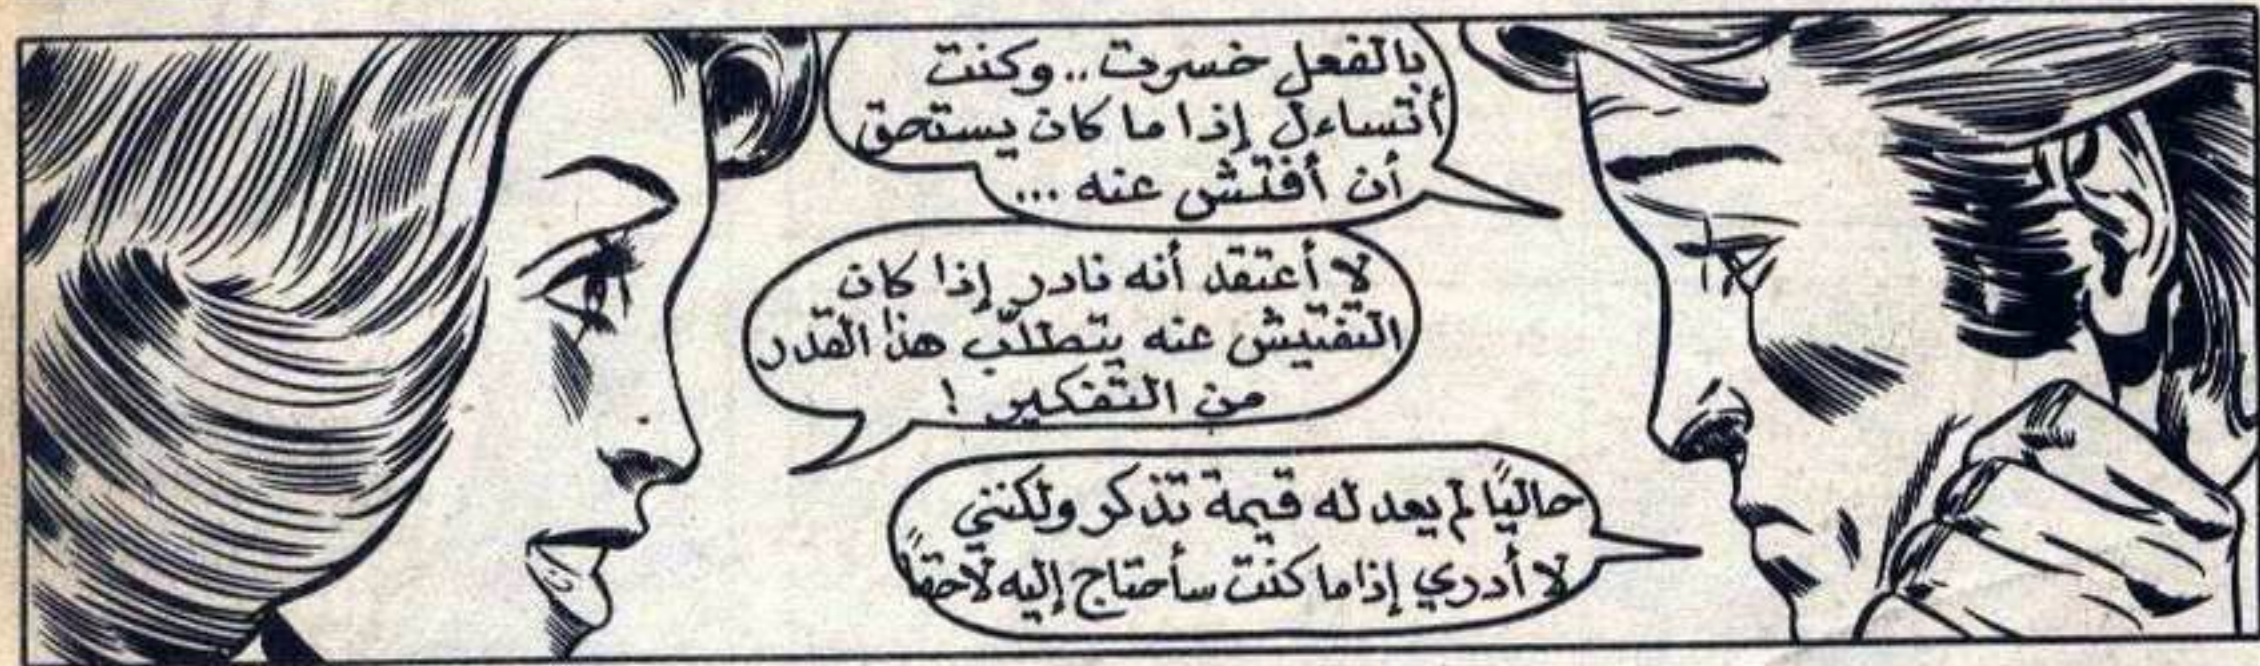 بالفعل خسرت.. وكنت
أتساءل إذا ما كان يستحق
أن أفتش عنه ...
لا أعتقد أنه نادر إذا كان
التفتيش عنه يتطلّب هذا القدر
من التفكير !
حاليًا لم يعد له قيمة تذكر ولكنني
لا أدري إذا ما كنت سأحتاج إليه لاحقًا